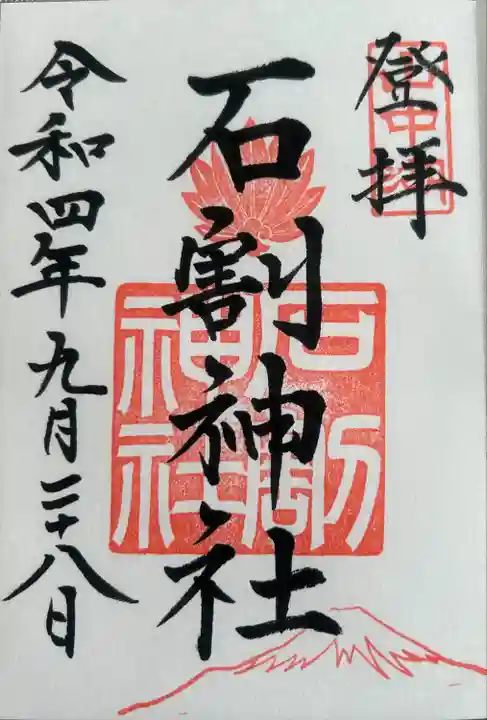 登拝
石割神社
石割神社
令和四年九月二十八日